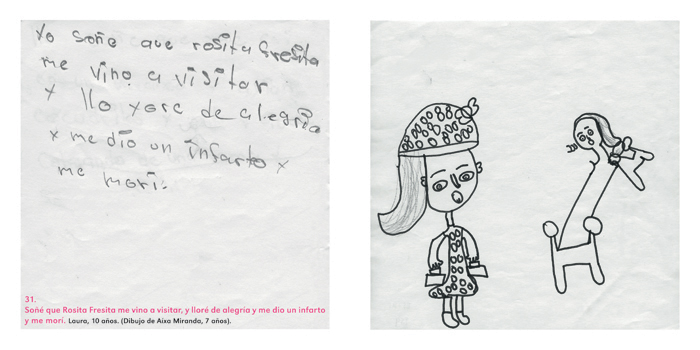 Yo soñe que rosita fresita
me vino a visitar
y llo yore de alegria
y me dio un infarto y
me mori.
31.
Soñé que Rosita Fresita me vino a visitar, y lloré de alegría y me dio un infarto
y me morí. Laura, 10 años. (Dibujo de Aixa Miranda, 7 años).